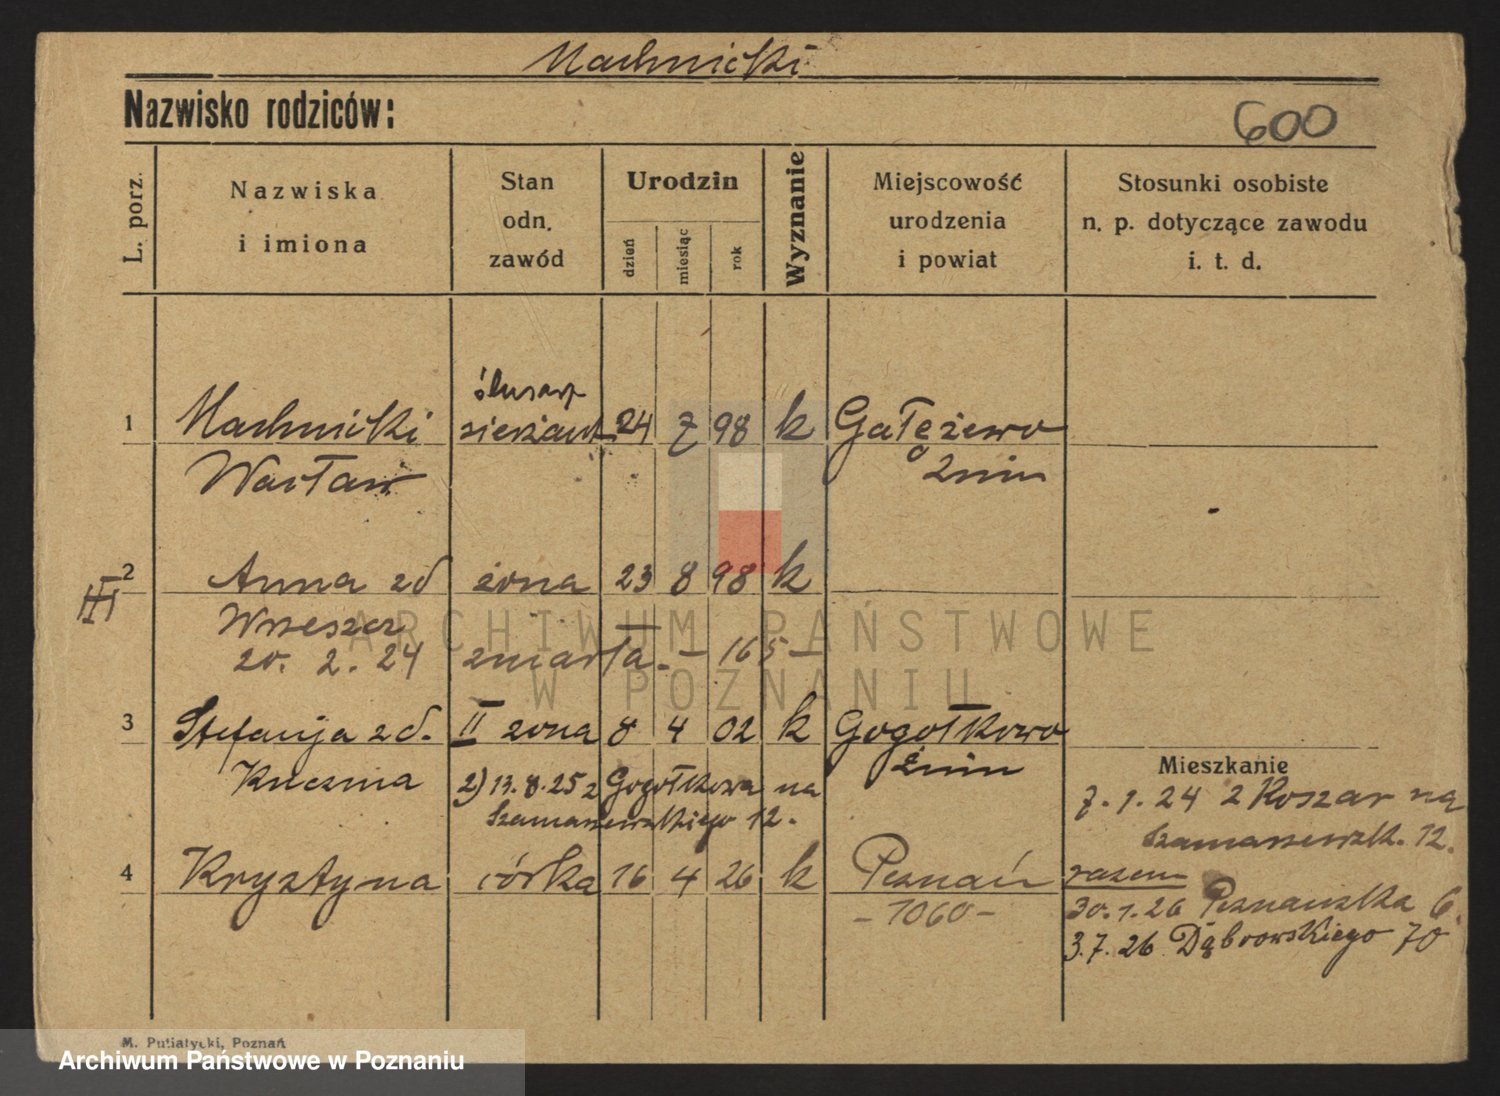 Machnicki
Nazwisko rodziców:
600
L. porz.
Nazwiska
i imiona
Stan
odn.
zawód
Urodzin
dzień
miesiąc
rok
Wyznanie
Miejscowość
urodzenia
i powiat
Stosunki osobiste
n. p. dotyczące zawodu
i. t. d.
ślusarz
1 Machnicki sierżant 24 7 98 k Gałężewo
Wacław Żnin
2 Anna zd żona 23 8 98 k
III
Wrzeszcz
20. 2. 24 zmarła - - 165 -
3 Stefanja zd. II żona 8 4 02 k Gogołkowo
Żnin
Kuczma 2) 13.8.25 z Gogołkowa na
Szamarzewskiego 12.
Mieszkanie
7. 1. 24 z Koszar na
Szamarzewsk. 12.
4 Krystyna córka 16 4 26 k Poznań razem
- 1060 -
30.1.26 Poznańska 6.
3.7.26 Dąbrowskiego 70
ARCHIWUM PAŃSTWOWE
W POZNANIU
M. Putiatycki, Poznań
Archiwum Państwowe w Poznaniu